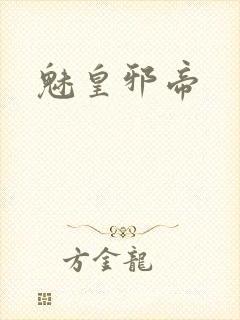 魅皇邪帝
方金龍